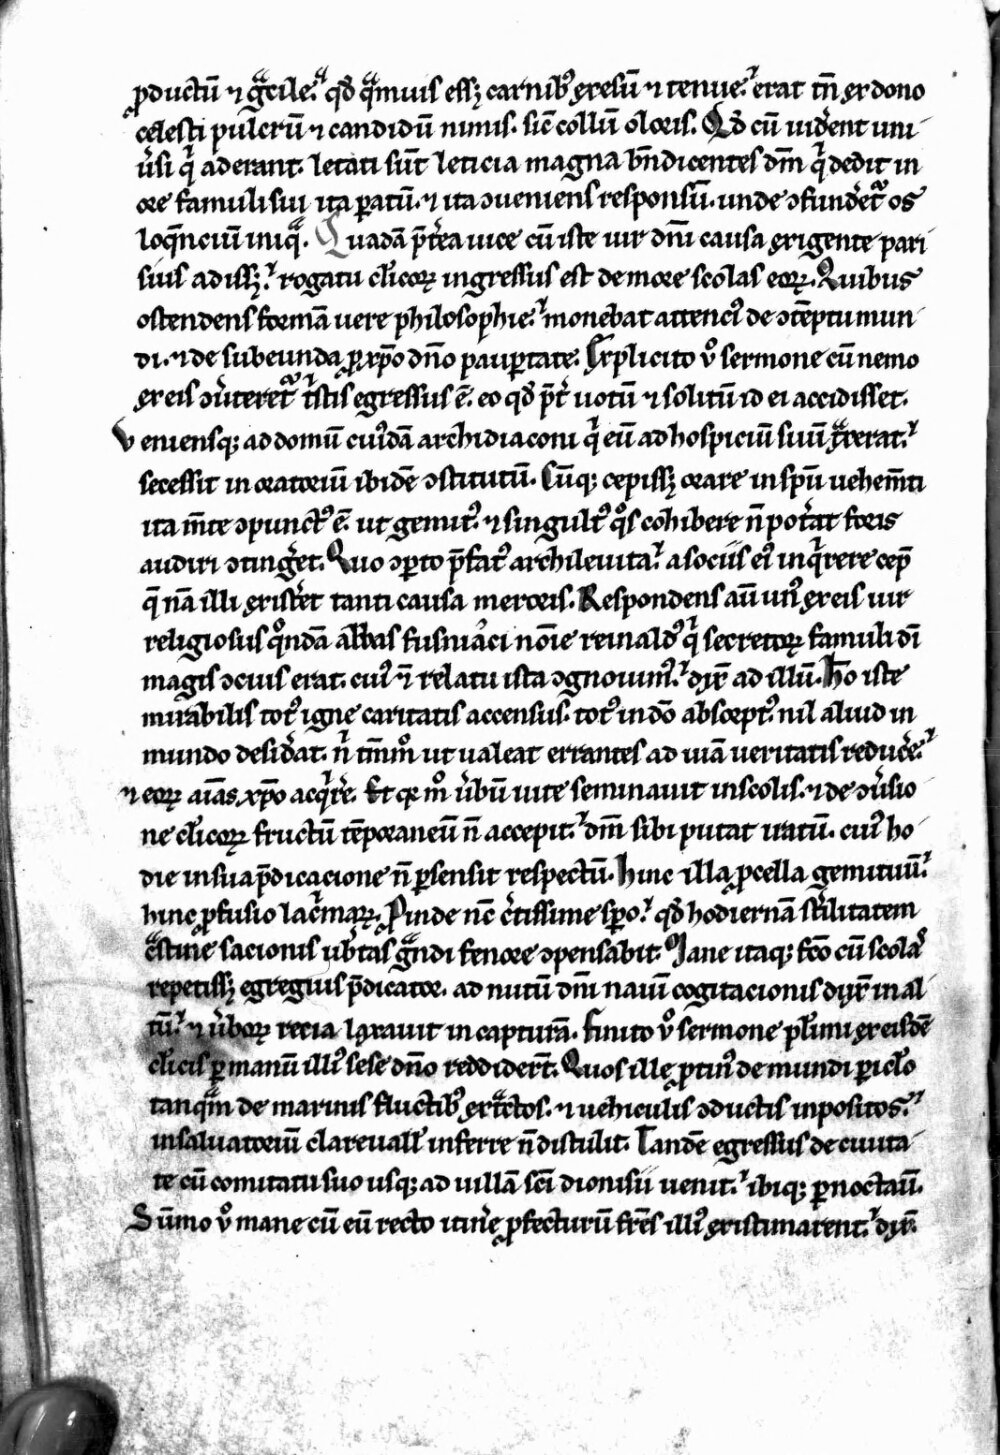 ꝓductū ⁊ gͣcile. qđ qͣmuis eſſꝫ carnibꝰ exesū ⁊ tenue. erat tn̄ ex dono
celesti pulcrū ⁊ candidū nimis. sic̄ collū oloris. Qđ cū uid̓ent uni
ũsi qͥ aderant. letati sūt leticia magna bn̄dicentes dm̄ qͥ dedit in
ore famuli sui ita ꝑatū. ⁊ ita ↄueniens responsū. unde ↄfund̓et̃ os
loq̄nciū iniqͣ. Quadā p̄t̓ea uice cū iste uir dn̄i causa exigente pari
sius adissꝫ. rogatu cl̓icoꝝ ingressus est de more scolas eoꝝ. Quibus
ostendens formā uere philosophie. monebat attenciꝰ de ↄtēptu mun
di. ⁊ de subeunda ꝓ xp̄o dn̄o pauꝑtate. Explicito ỡ sermone cū nemo
ex eis ↄũteret̃ tͥstis egressus ē. eo qđ p̄t̓ uotū ⁊ solitū id ei accidisset.
Veniensqꝫ ad domū cuiꝰdā archidiaconi qͥ eū ad hospiciū suū tͣxerat.
secessit in oratoriū ibidē ↄstitutū. Cūqꝫ cepissꝫ orare in sp̄u uehem̄ti
ita m̄te ↄpunctꝰ ē. ut gemitꝰ. ⁊ singultꝰ qͦs cohibere n̄ pot̓at foris
audiri ↄting̓et. Quo ↄꝑto p̄fatꝰ archileuita. a sociis eiꝰ inqͥrere cep̄
q̄ nā illi exist̓et tanti causa meroris. Respondens aū unꝰ ex eis uir
religiosus qͦndā abbas fusniaci noīe reinaldꝰ qͥ secretoꝝ famuli dī
magis ↄcius erat. cuiꝰ ⁊̄ relatu ista ↄgnouimꝰ. dix̄ ad illū. Hō iste
mirabilis totꝰ igne caritatis accensus. totꝰ in dō absorptꝰ. nil aliud in
mundo desid̓at. n̄ tm̄moͦ ut ualeat errantes ad uiā ueritatis reduc̓e.
⁊ eoꝝ aīas xp̄o acqͥr̓e. Et qꝛ mͦ ũbū uite seminauit in scolis. ⁊ de ↄũsio
ne cl̓icoꝝ fructū tēporaneū n̄ accepit. dm̄ sibi putat iratū. cuiꝰ ho
die in sua p̄dicacione n̄ ꝑsensit respectū. Hinc illa ꝓcella gemituū.
hinc ꝓfusio lacͥmaꝝ. Proinde nc̄ c̓tissime sꝑo. qđ hodiernā st̓ilitatem
cͣstine sacionis ub̓tas gͣndi fenore ↄpensabit. Mane itaqꝫ fc̄o cū scolas̓
repetissꝫ egregius p̄dicator. ad nutū dn̄i nauī cogitacionis dux̄ in al
tū. ⁊ ũboꝝ recia laxauit in capturā. Finito ỡ sermone pl̓imi ex eisdē
cl̓icis ꝑ manū illiꝰ sese dn̄o reddider̄t. Quos ille ꝓtinꝰ de mundi ꝑicl̓o
tanqͣm de marinis fluctibꝰ extͣctos. ⁊ uehiculis ↄductis inpositos.
in saluatoriū clareuall̓ inferre n̄ distulit. Tandē egressus de ciuita
te cū comitatu suo usqꝫ ad uillā sc̄i dionisii uenit. ibiqꝫ ꝑnoctauī.
Sūmo ỡ mane cū eū recto itin̓e ꝓfecturū frēs illiꝰ existimarent. dix̄.